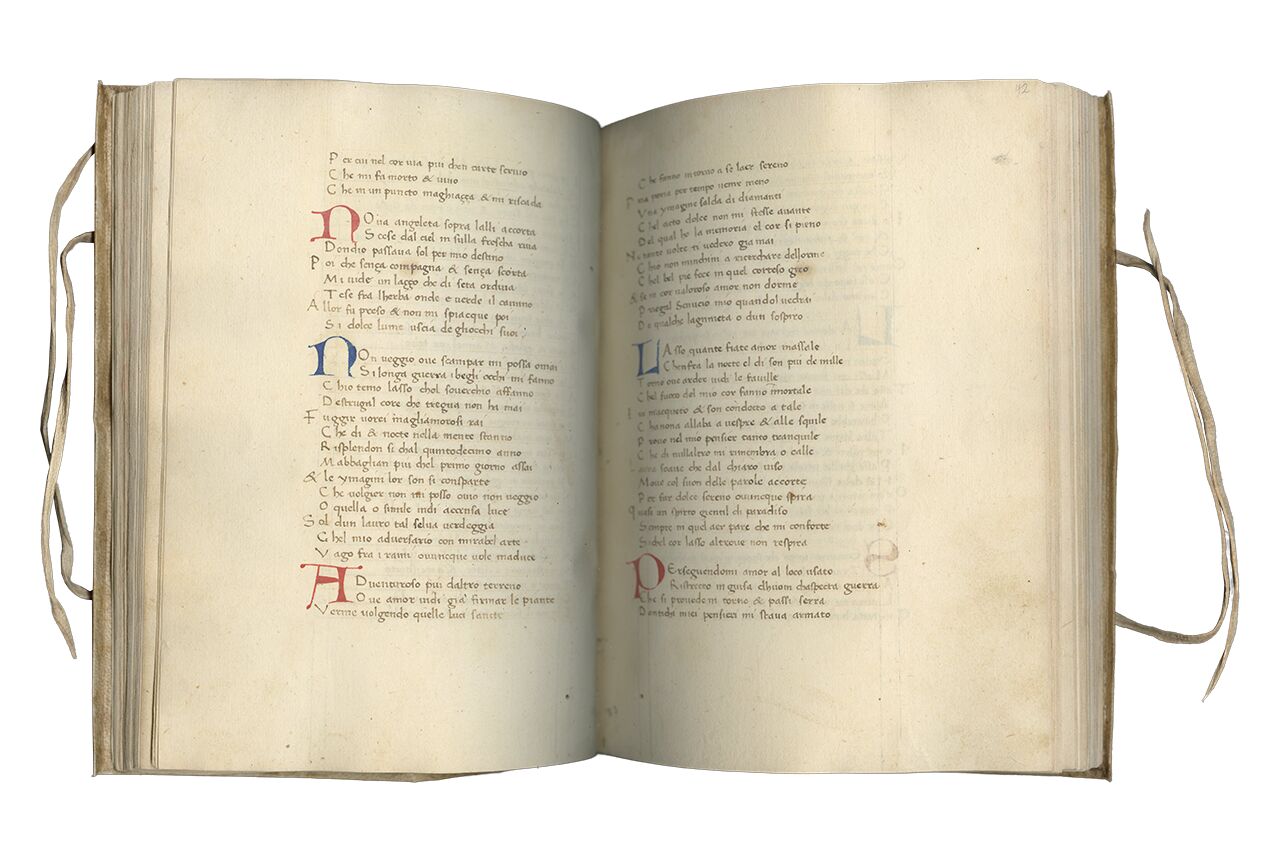 Per cui nel cor via piu chen carte scrivo
Che mi fa morto & vivo
Che in un puncto maghiaçça & mi riscada
NOva angeleta sopra lalli accorta
Scese dal ciel in sulla frescha riva
Dondio passava sol per mio destino
Poi che sença compagna & sença scorta
Mi vide un laggo che di seta ordiva
Tese fra lherba onde e verde il camino
Allor fu preso & non mi spiacque poi
Si dolce lume uscia de ghocchi suoi
NOn veggio ove scampar mi possa omai
Si longa guerra i begli occhi mi fanno
Chio temo lasso chel soverchio affanno
Destrugal core che tregua non ha mai
Fuggir vorei imagliamorosi rai
Che di & nocte nella mente stanno
Risplendon si chal quintodecimo anno
Mabbaglian piu chel primo giorno assai
& le ymagini lor son si consparte
Che volgier non mi posso ovio non veggio
O quella o simile indi accensa luce
Sol dun lauro tal selva verdeggia
Chel mio adversario con mirabel arte
Vago fra i rami ovuncque vole maduce
ADventuroso piu daltro terreno
Ove amor vidi già firmar le piante
Verme volgendo quelle luci sancte
42
Che fanno intorno a se laer sereno
Prima poria per tempo venir meno
Una ymagine salda di diamanti
Chel acto dolce non mi stesse avante
Del qual ho la memoria el cor si pieno
Ne tante volte ti vedero gia mai
Chio non minchini a ricerchare dellorme
Chel bel pie fece in quel cortese giro
& se in cor valoroso amor non dorme
Priegal Senucio mio quandol vedrai
Di qualche lagrimeta o dun sospiro
LAsso quante fiate amor massale
Chenfra la nocte el di son piu de mille
Torno ove arder vidi le faville
Chel fuoco del mio cor fanno imortale
Ivi macqueto & son condocto a tale
Chanona allaba a vespre & alle squile
Provo nel mio pensier tanto tranquile
Che di nullaltro mi rimembra o calle
Laura soave che dal chiaro viso
Move col suon delle parole accorte
Per far dolce sereno ovuncque spira
Quasi un spirto gientil di paradiso
Sempre in quel aer pare che mi conforte
Si chel cor lasso altrove non respira
PErseguendomi amor al loco usato
Ristrecto in guisa dhuom chaspecta guerra
Che si provede in torno & passi serra
Dantichi miei pensieri mi stava armato